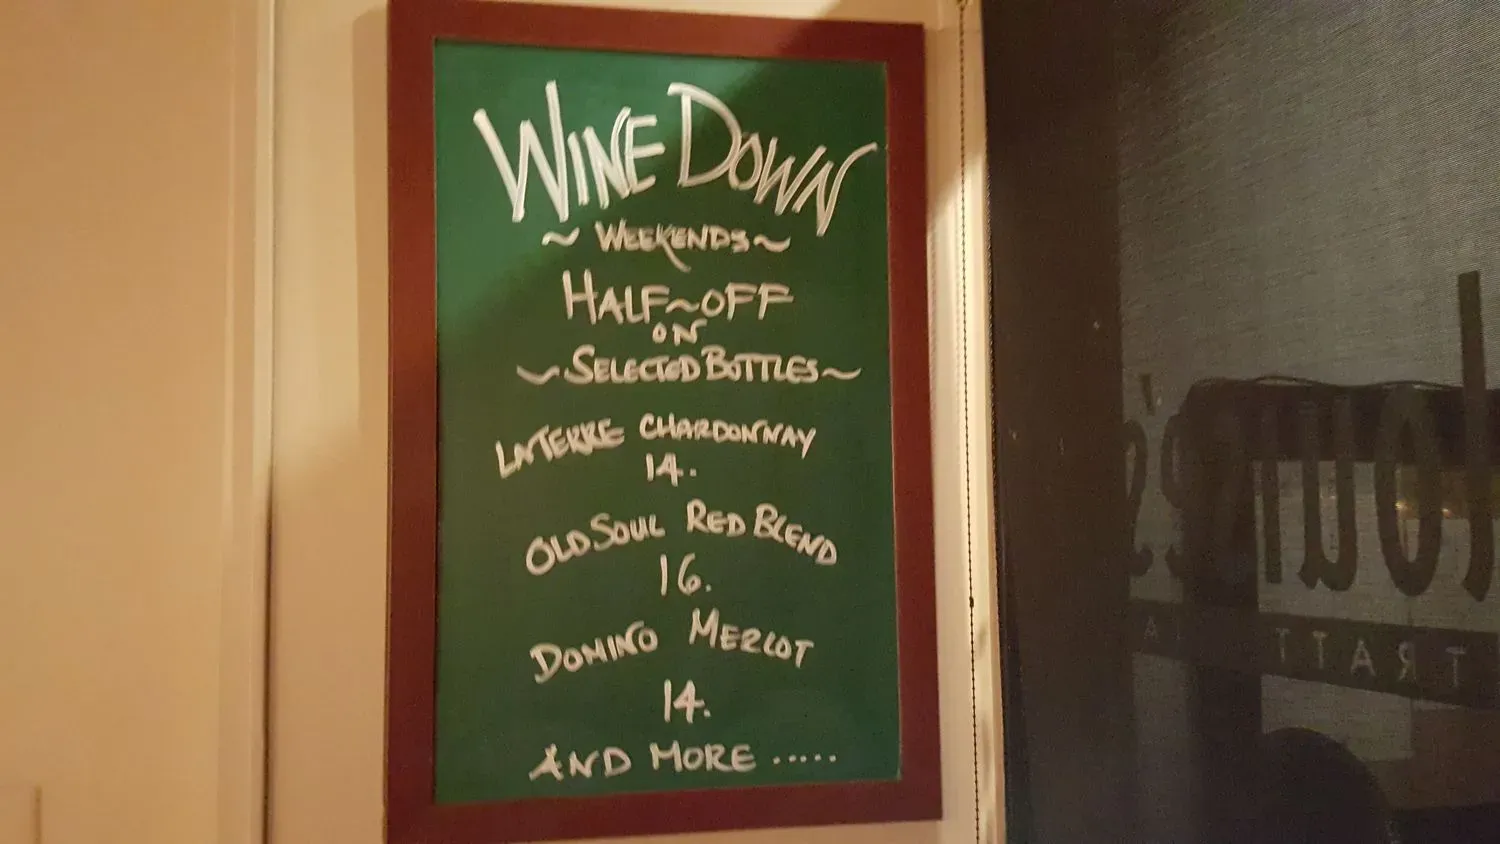 WINE DOWN
~ WEEKENDS ~
HALF~OFF
ON
~ SELECTED BOTTLES ~
LATERRE CHARDONNAY
14.
OLD SOUL RED BLEND
16.
DOMINO MERLOT
14.
AND MORE .....